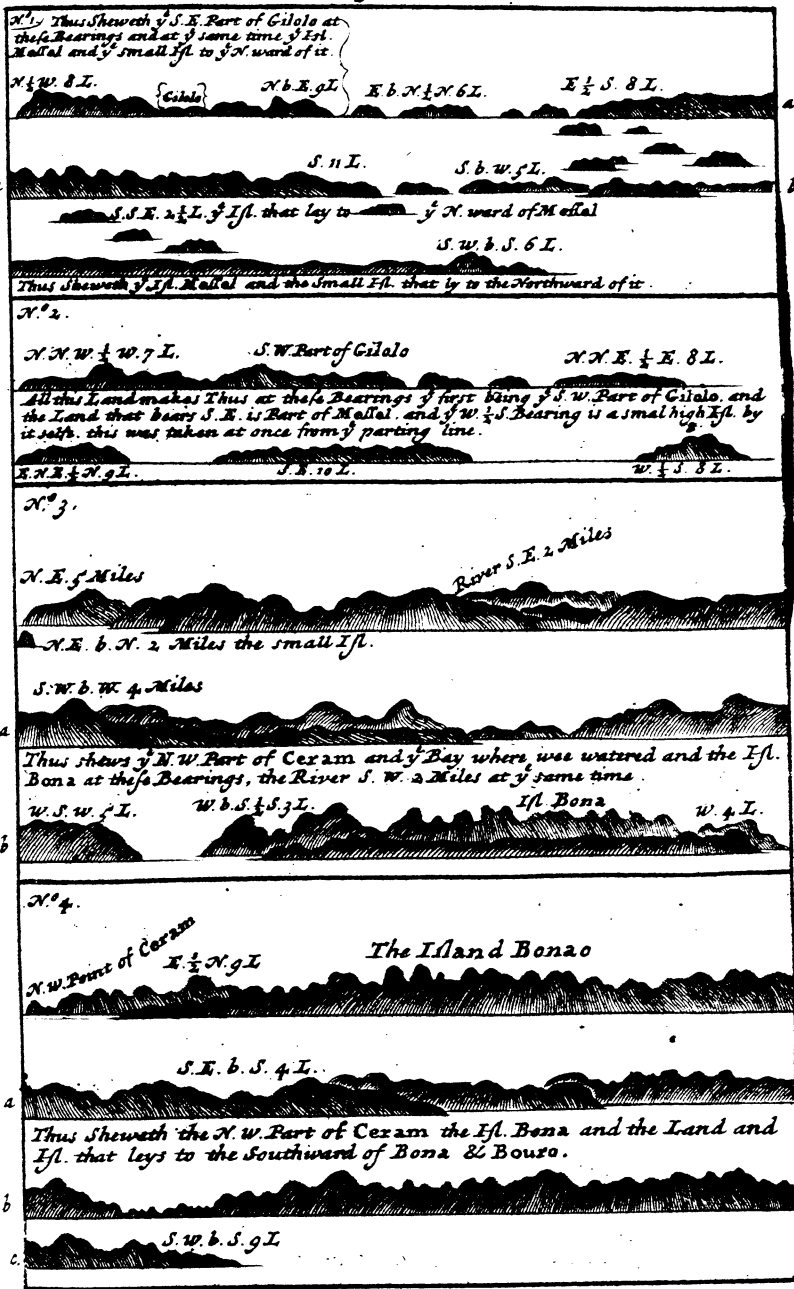 N.º 1. Thus Sheweth yᵉ S.E. Part of Gilolo at
these Bearings and at yᵉ same time yᵉ Isl.
Messel and yᵉ small Isl to yᵉ N.ward of it.
N.½W. 8 L. {Gilolo} N.b.E. 9L E.b.N.½N. 6L. E½S. 8L.
a
S. 11 L. S.b.W. 5L.
b
S.S.E. 2½L. yᵉ Isl. that lay to yᵉ N.ward of Messel
S.W.b.S. 6 L.
Thus Sheweth yᵉ Isl. Messel and the Small Isl. that ly to the Northward of it.
N.º 2.
N.N.W.½W. 7 L. S.W. Part of Gilolo N.N.E.½E. 8L.
All this Land makes Thus at these Bearings yᵉ first being yᵉ S.W. Part of Gilolo. and
the Land that bears S.E. is Part of Messel. and yᵉ W.½S. Bearing is a smal high Isl. by
it selfe. this was taken at once from yᵉ parting line.
B.
E.N.E.½N. 9L. S.E. 10 L. W.½S. 8 L.
N.º 3.
N.E. 5 Miles River S.E. 2 Miles
N.E.b.N. 2 Miles the small Isl.
S.W.b.W. 4 Miles
a
Thus shews yᵉ N.W. Part of Ceram and yᵉ Bay where wee watered and the Isl.
Bona at these Bearings, the River S.W. 2 Miles at yᵉ same time.
W.S.W. 5L. W.b.S.½S. 3L. Isl Bona W. 4 L.
b
N.º 4.
N.W. Point of Ceram E.½N. 9L The Island Bonao
S.E.b.S. 4 L.
a
Thus Sheweth the N.W. Part of Ceram the Isl. Bona and the Land and
Isl. that leys to the Southward of Bona & Bouro.
b
S.W.b.S. 9L
c.